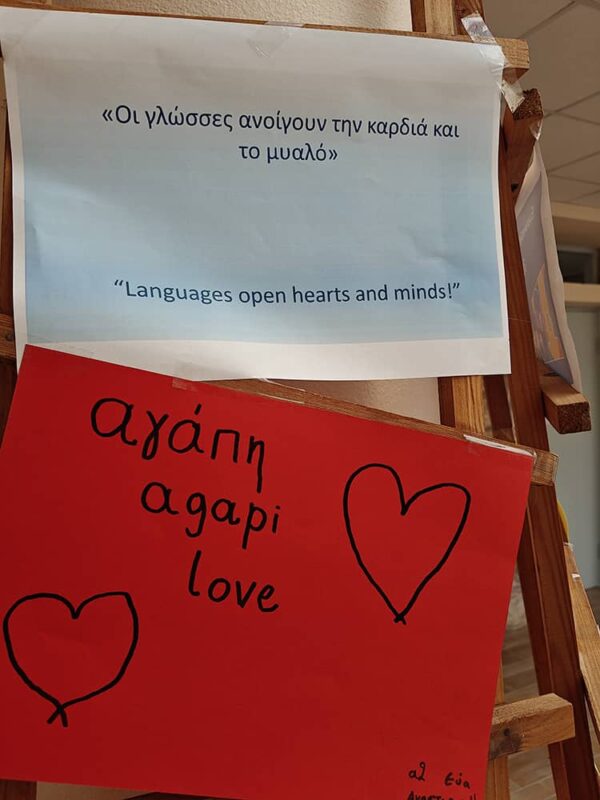 «Οι γλώσσες ανοίγουν την καρδιά και
το μυαλό»
“Languages open hearts and minds!”
αγάπη
agapi
love